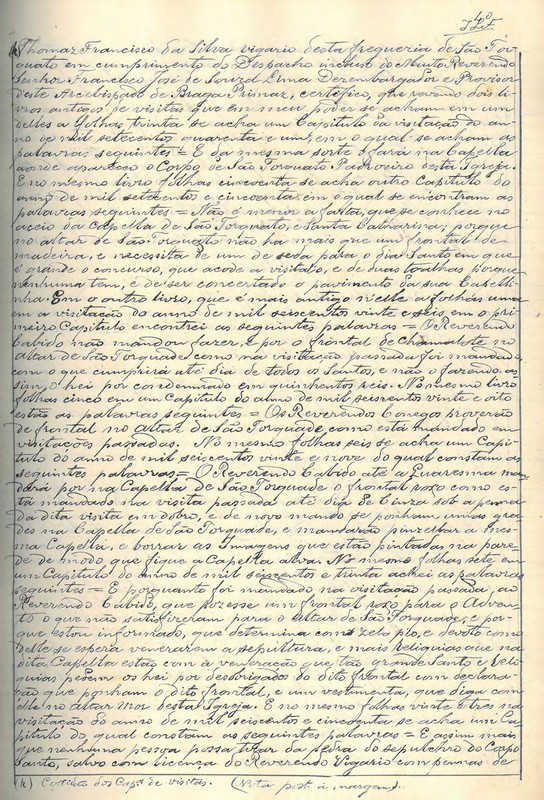 Thomaz Francisco da Silva vigario desta freguezia de São Tor-
quato em cumprimento do Despacho incluso do Muito Reverendo
Senhor Francisco José de Souza Lima Dezembargador e Provisor
deste Arcebispado de Braga Primaz, certefico, que revendo dois li-
vros antigos de visitas que em meu poder se acham em um
delles a folhas trinta se acha um Capitulo da visitação do an-
no de mil setecentos quarenta e um, em o qual se acham as
palavras seguintes = E da mesma sorte o fará na Capella
aonde appareceo o Corpo de São Torquato Padroeiro desta Igreja.
E no mesmo livro folhas cincoenta se acha outro Capitulo do
anno de mil setecentos e cincoenta em o qual se encontram as
palavras seguintes = Não é menor a falta, que se conhece no
aceio da Capella de São Torquato, e Santa Catharina; porque
no altar de São Torquato não ha mais que um frontal de
madeira, e necessita de um de seda para o dia Santo em que
é grande o concurso, que acode a visital-o, e de duas toalhas porque
nenhuma tem, e de ser concertado o pavimento da sua Capelli-
nha. Em o outro livro, que é mais antigo n'elle a folhas uma
em a visitação do anno de mil seiscentos vinte e seis, em o pri-
meiro Capitulo encontrei as seguintes palavras = O Reverendo
Cabido não mandou fazer, e por o frontal de Chamalote no
altar de São Torquade como na visitação passada foi mandado
com o que cumprirá até dia de todos os Santos, e não o fazendo as-
sim, o hei por condemnado em quinhentos reis. No mesmo livro
folhas cinco em um Capitulo do anno de mil seiscentos vinte e oito
estão as palavras seguintes = Os Reverendos Conegos proverão
de frontal no altar de São Torquade, como está mandado em
visitações passadas. No mesmo folhas seis se acha um Capi-
tulo do anno de mil seiscentos vinte e nove do qual constam as
seguintes palavras = O Reverendo Cabido até a Quaresma man-
dará por na Capella de São Torquade o frontal roxo como es-
tá mandado na visita passada até dia de Cinza sob a pena
da dita visita em dobro, e de novo mando se ponham umas gra-
des na Capella de São Torquade, e mandarão pincellar a mes-
ma Capella, e borrar as Imagens que estão pintadas na pare-
de de modo, que fique a Capella alva. No mesmo folhas sete em
um Capitulo do anno de mil seiscentos e trinta achei as palavras
seguintes = E porquanto foi mandado na visitação passada, ao
Reverendo Cabido, que pozesse um frontal roxo para o Adven-
to o que não satisfizeram para o altar de São Torquade, e por-
que estou informado, que determina com zelo pio, e devoto como
delle se espera venerarem a sepultura, e mais Reliquias que na
dita Capella estão com a veneração que tão grande Santo e Reli-
quias pedem os hei por desobrigados do dito frontal com declara-
ção que ponham o dito frontal, e um vestimenta, que diga com
elle no altar Mor desta Igreja. E no mesmo folhas vinte e tres na
visitação do anno de mil seiscentos e cincoenta se acha um Ca-
pitulo do qual constam as seguintes palavras = E assim mais
que nenhuma pessoa possa tirar da pedra do sepulchro do Corpo
Santo, salvo com licença do Reverendo Vigario com pennas de
dos Cap.os de visitas. (Nota post. á margem).